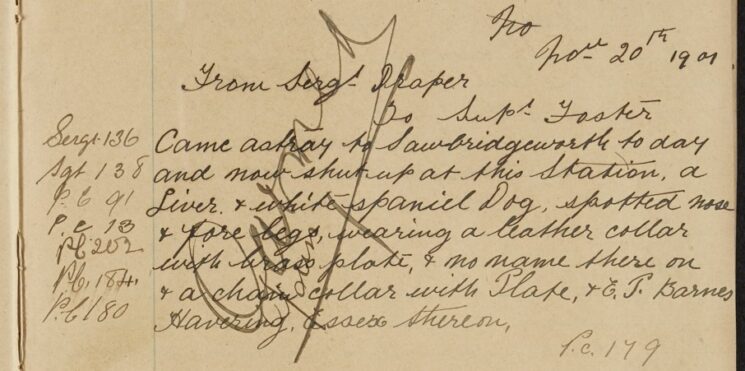 No
Nov 20th 1901
From Sergt Draper
To Supt Foster
Sergt 136
Sgt 138
P.C 91
P.C 13
P.C 202
P.C. 184.
P.C 180
Came astray to Sawbridgeworth to day
and now shut up at this Station, a
Liver & white spaniel Dog, spotted nose
& fore legs, wearing a leather collar
with brass plate, & no name there on
& a chain collar with Plate, & E. P. Barnes
Havering, Essex thereon.
P.C. 179